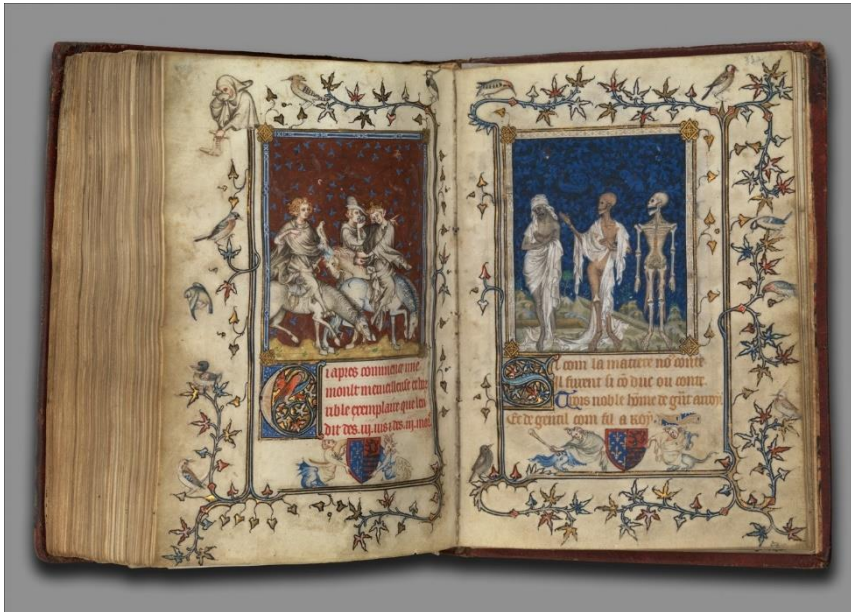 Ci apres commence une
moult merveilleuse et hor
rible exemplaire que len
dit des .iij. vis ⁊ des .iij. mors
Si com la matiere nō conte
Il furent si cō duc ou conte
Trois noble hōme de gr̄t arroy
Et de gentil com fil a roy